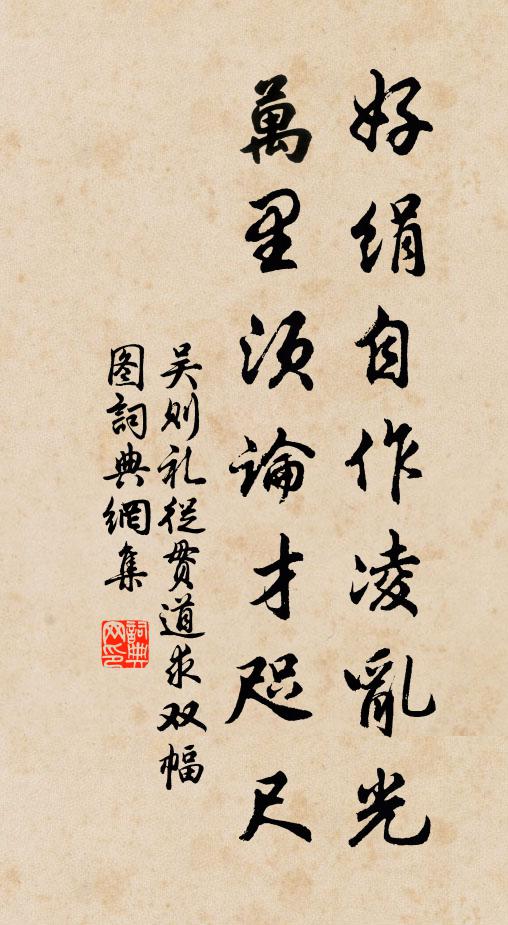 好绢自作凌亂光
萬里须論才咫尺
吴则礼從贯道求双幅
图詞典網集
詞典網印